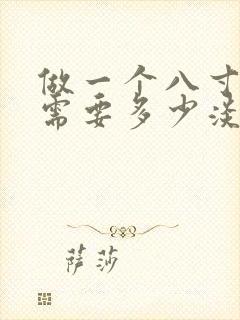 做一个八寸
需要多少淡
萨莎